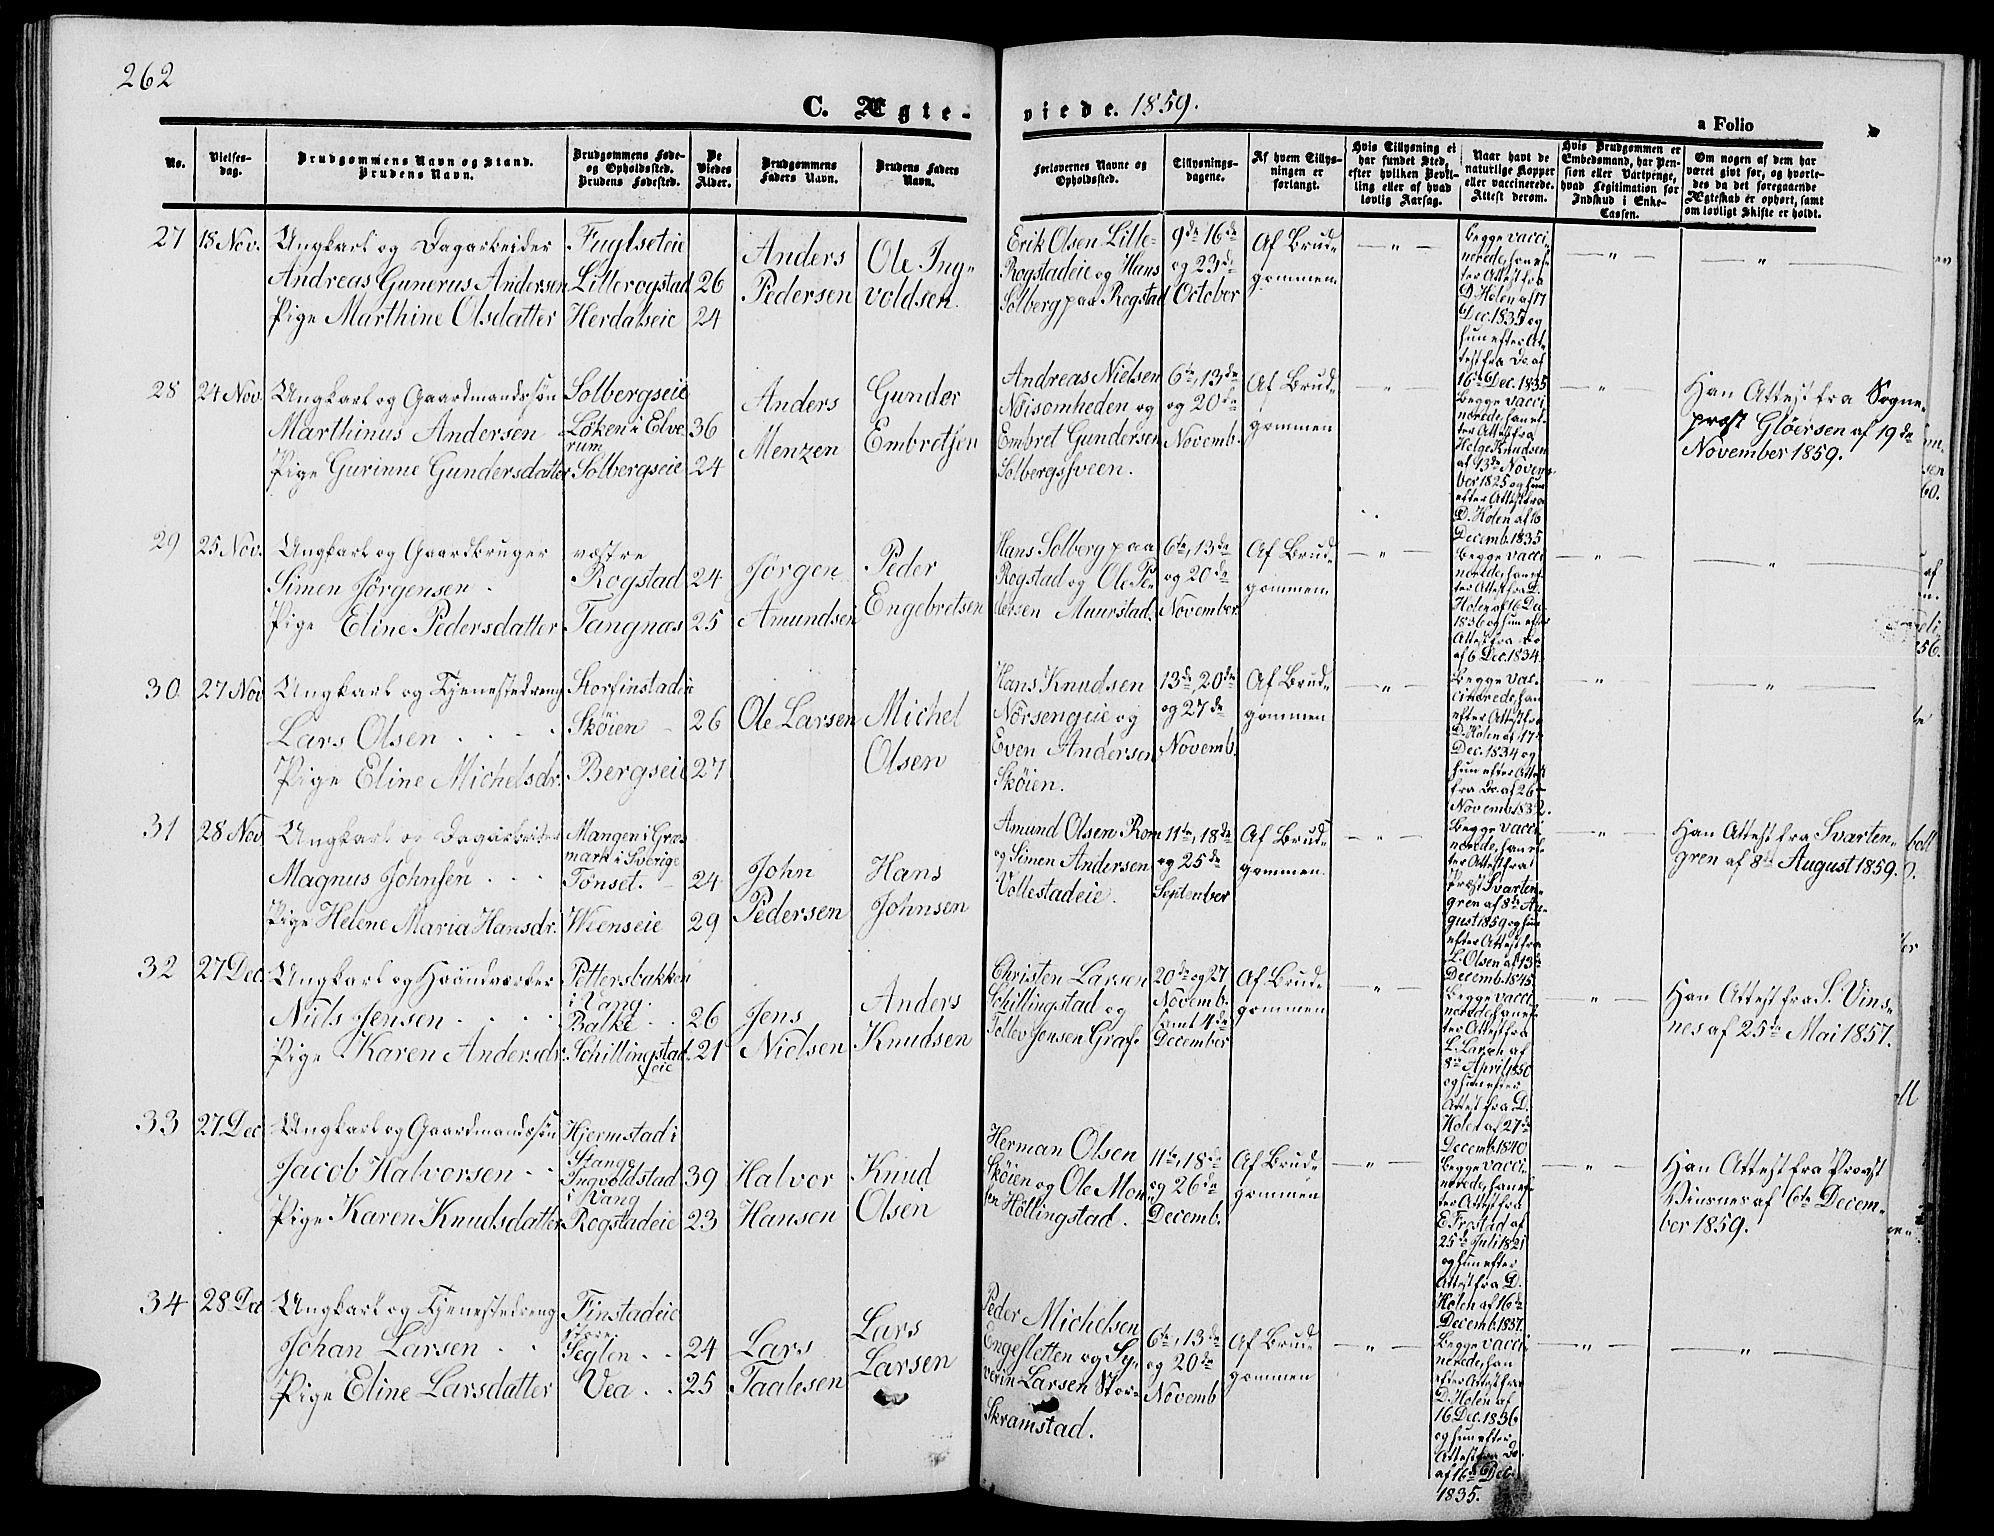 262
C. Ægteviede. 1859.
a Folio
No.
Vielsesdag.
Brudgommens Navn og Stand.
Brudens Navn.
Brudgommens Føde-
og Opholdssted.
Brudens Fødested.
De
Viedes
Alder.
Brudgommens
Faders Navn.
Brudens Faders
Navn.
Forlovernes Navne og
Opholdssted.
Tillysnings-
dagene.
Af hvem Tillys-
ningen er
forlangt.
Hvis Tillysning ei
har fundet Sted,
efter hvilken Bevil-
ling eller af hvad
lovlig Aarsag.
Naar havt de
naturlige Kopper
eller vaccinerede.
Attest derom.
Hvis Brudgommen er
Embedsmand, har Pen-
sion eller Vartpenge,
hvad Legitimation for
Indskud i Enke-
Cassen.
Om nogen af dem har
været givt før, og hvorle-
des da det foregaaende
Ægteskab er ophørt, samt
om lovligt Skifte er holdt.
27 18 Nov.
Ungkarl og Dagarbeider
Andreas Gunerus Andersen
Pige Marthine Olsdatter
Fuglseteie
Lillerogstad
Herdalseie
26
24
Anders
Pedersen
Ole Ing-
voldsen.
Erik Olsen Lille-
Rogstadeie og Hans
Solberg paa Rogstad
9de 16de
og 23de
October
Af Brud-
gommen
— " —
Begge vacci-
nerede, han ef-
ter Attest fra
D. Holen af 17
Dec. 1835 og
hun efter At-
test fra Do af
16de Dec. 1835
— " —
— " —
28 24 Nov.
Ungkarl og Gaardmandssøn
Marthinus Andersen
Pige Gurinne Gundersdatter
Solbergseie
Løken i Elve
rum
Solbergseie
36
24
Anders
Menzen
Gunder
Embretsen
Andreas Nielsen
Nøisomheden og
Embret Gundersen
Solbergssveen.
6te, 13de
og 20de
Novemb.
Af Brud-
gommen
— " —
Begge vacci
nerede, han ef-
ter Attest fra
Helge Knudsen
af 13de Novem-
ber 1825 og hun
efter Attest fra
D. Holen af 16
Decemb. 1835
— " —
Han Attest fra Sogne-
præst Gløersen af 19de
November 1859.
29 25 Nov.
Ungkarl og Gaardbruger
Simen Jørgensen
Pige Eline Pedersdatter
vestre
Rogstad
Tangnæs
24
25
Jørgen
Amundsen
Peder
Engebretsen
Hans Solberg paa
Rogstad og Ole Pe-
dersen Muurstad.
6te, 13de
og 20de
November
Af Brud-
gommen
— " —
Begge vacci
nerede, han ef-
ter Attest fra D.
Holen af 16 De-
1836 og hun efter
Attest fra Do
af 6 Dec. 1834.
— " —
— " —
30 27 Nov
Ungkarl og Tjenestedreng
Lars Olsen
Pige Eline Michelsdr.
Storfinstadeie
Skøien
Bergseie
26
27
Ole Larsen
Michel
Olsen
Hans Knudsen
Nørsengeie og
Even Andersen
Skøien.
13de, 20de
og 27de
Novemb.
Af Brud-
gommen
— " —
Begge vac-
cinerede, han
efter Attest fra
D. Holen af 17de
Dec. 1834 og
hun efter Attest
fra Do af 26
Novemb. 1832.
— " —
— " —
31 28 Nov
Ungkarl og Dagarbeider
Magnus Johnsen
Pige Helene Maria Hansdr.
Mangen i Græs
mark i Sverige
Tønset.
Weenseie
24
29
John
Pedersen
Hans
Johnsen
Amund Olsen Rom
og Simen Andersen
Vollestadeie.
11te, 18de
og 25de
September
Af Brud-
gommen.
— " —
Begge vacci
nerede, han ef-
ter Attest fra
Præst Svarten-
gren af 8de Au-
gust 1859 og hun
efter Attest fra
L. Olsen af 13de
Decemb. 1845.
— " —
Han Attest fra Svarten-
gren af 8de August 1859.
32 27 Dec.
Ungkarl og Haandverker
Niels Jensen
Pige Karen Andersdr.
Pettersbakken
i Vang.
Balke
Schillingstad
eie
26
21
Jens
Nielsen
Anders
Knudsen
Christen Larsen
Schillingstad og
Tollev Jensen Graf-
20de og 27
Novemb.
samt 4de
December
Af Brud-
gommen
— " —
Begge vacci-
nerede, han ef-
ter Attest fra
L. Larsen af
8de April 1850
og hun efter
Attest fra D.
Holen af 27de
Decemb. 1840
— " —
Han Attest fra S. Vins-
nes af 25de Mai 1857.
33 27 Dec.
Ungkarl og Gaardmandssøn
Jacob Halvorsen
Pige Karen Knudsdatter
Hjermstad i
Stange
Ingvoldstad
i Vang
Rogstadeie
39
23
Halvor
Hansen
Knud
Olsen
Herman Olsen
Skøien og Ole Mon-
sen Hollingstad.
11te, 18de
og 26de
Decemb.
Af Brud-
gommen
— " —
Begge vacci-
nerede, han ef-
ter Attest fra
E. Frostad af
25de Juli 1821
og hun efter
Attest fra D.
Holen af 16de
Decemb. 1837.
— " —
Han Attest fra Provst
Vinsnes af 6te Decem-
ber 1859.
34 28 Dec
Ungkarl og Tjenestedreng
Johan Larsen
Pige Eline Larsdatter
Finstadeie
store
Seglen
Vea
24
25
Lars
Taalesen
Lars
Larsen
Peder Michelsen
Engesletten og Sy-
verin Larsen Stor-
Skramstad.
6te, 13de
og 20de
Novemb
Af Brud-
gommen
— " —
Begge vacci
nerede, han
efter Attest fra
D. Holen af
16 Dec. 1836
og hun efter
Attest fra Do
af 16de Dec.
1835.
— " —
— " —